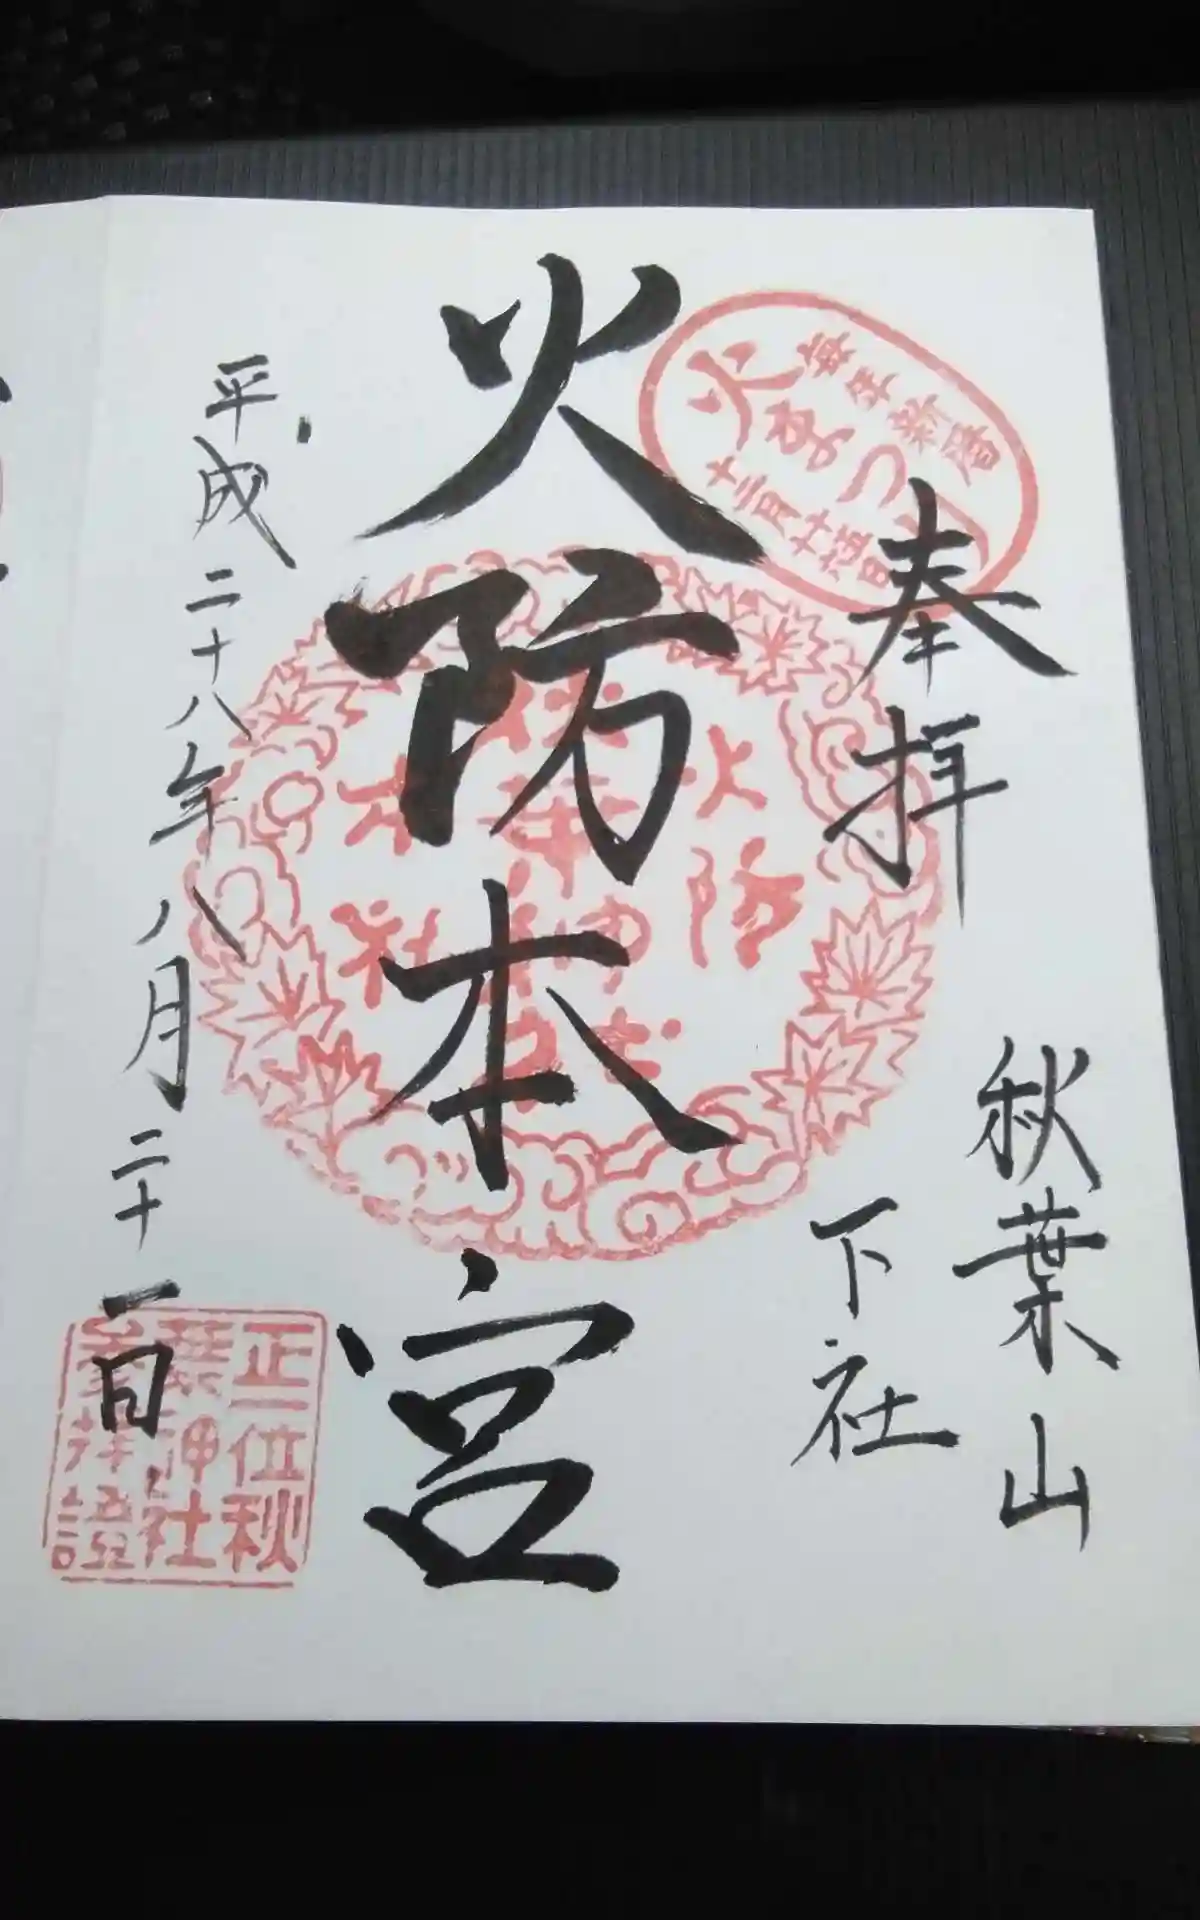 奉拝
秋葉山
下社
火防本宮
平成二十八年八月二十一日
毎年新暦
火まつり
十二月十五日
火防
秋葉神社
本社
正一位秋
葉神社